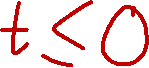 t ≤ 0